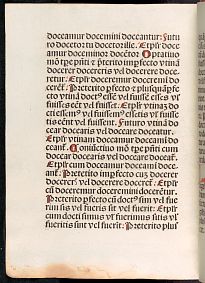 doceamur doceminī doceantur: Futu
ro docetor tu docetor ille. Et pl'r doce
amur doceminor docētor Optatiuo
mō tp̄e p̄nti & p̄terito imp̄fecto vtinā
docerer docereris vel docerere docere
tur: Et pl'r doceremur doceremī do
cerēt: Preterito p̄fecto & plusquā
p̄fecto vtinā doct9 essē vel fuissē esses vl'
fuisses eēt vel fuisset: Et pl'r vtinā do
cti essem9 vel fuissem9 essetis vl' fuisse
tis eēnt vel fuissent. Futuro vtinā do
cear docearis vel doceare doceatur.
Et pl'r vtinam doceamur doceamī do
ceant̄. Coniūctiuo mō tp̄e p̄nti cum
docear docearis vel doceare doceat̄.
Et pl'r cum doceamur doceamī doceant̄
Preterito imp̄fecto cū docerer do
cereris vel docerere doceret̄. Et pl'r
cū doceremur doceremini docerēt̄.
Preterito p̄fecto cū doct9 sim vel fue
rim sis vel fueris sit vel fuerit: Et pl'r
cum docti simus vl' fuerimus sitis vl'
fueritis sint vel fuerīt: Preterito plus